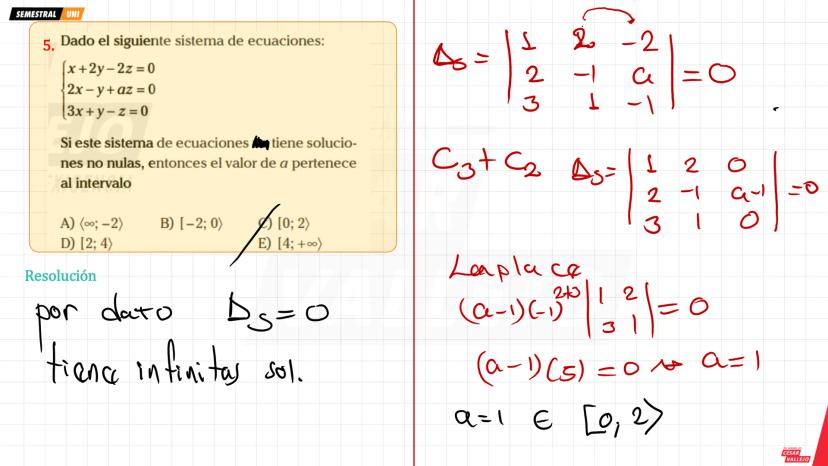 SEMESTRAL UNI
5. Dado el siguiente sistema de ecuaciones:
x+2y−2z=0
2x−y+az=0
3x+y−z=0
Si este sistema de ecuaciones tiene solucio-
nes no nulas, entonces el valor de a pertenece
al intervalo
A) ⟨∞; −2⟩ B) [−2; 0⟩ C) [0; 2⟩
D) [2; 4⟩ E) [4; +∞⟩
Resolución
por dato Δs=0
tiene infinitas sol.
Δs = | 1 2 −2 |
| 2 −1 a | = 0
| 3 1 −1 |
C₃+C₂ Δs= | 1 2 0 |
| 2 −1 a−1 | =0
| 3 1 0 |
Laplace
(a−1)(−1)²⁺³ | 1 2 | = 0
| 3 1 |
(a−1)(5) = 0 → a=1
a=1 ∈ [0, 2⟩
CESAR
VALLEJO